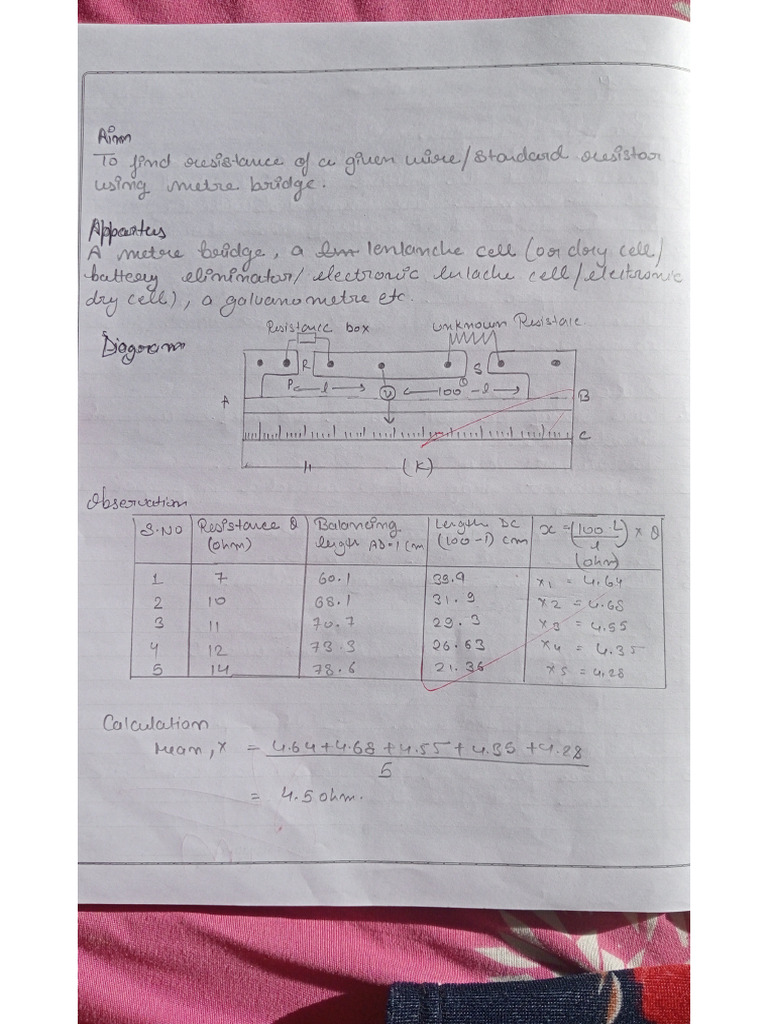 Aim
To find resistance of a given wire/standard resistor
using metre bridge.
Appartus
A metre bridge, a lenlanche cell (or dry cell/
battery eliminator/ electronic lnlache cell/electronic
dry cell), a galvanometre etc.
Resistance box
unknown Resistare
Diagram
R
S
P
l
100-l
A
B
C
(K)
Observation
S.NO Resistance Q (ohm) Balancing length AD=l cm Length DC (100-l) cm x=(100-L/l) x Q (ohm)
1 7 60.1 39.9 x1 = 4.64
2 10 68.1 31.9 x2 = 4.68
3 11 70.7 29.3 x3 = 4.55
4 12 73.3 26.63 x4 = 4.35
5 14 78.6 21.36 x5 = 4.28
Calculation
Mean, x = 4.64+4.68+4.55+4.35+4.28
5
= 4.5 ohm.